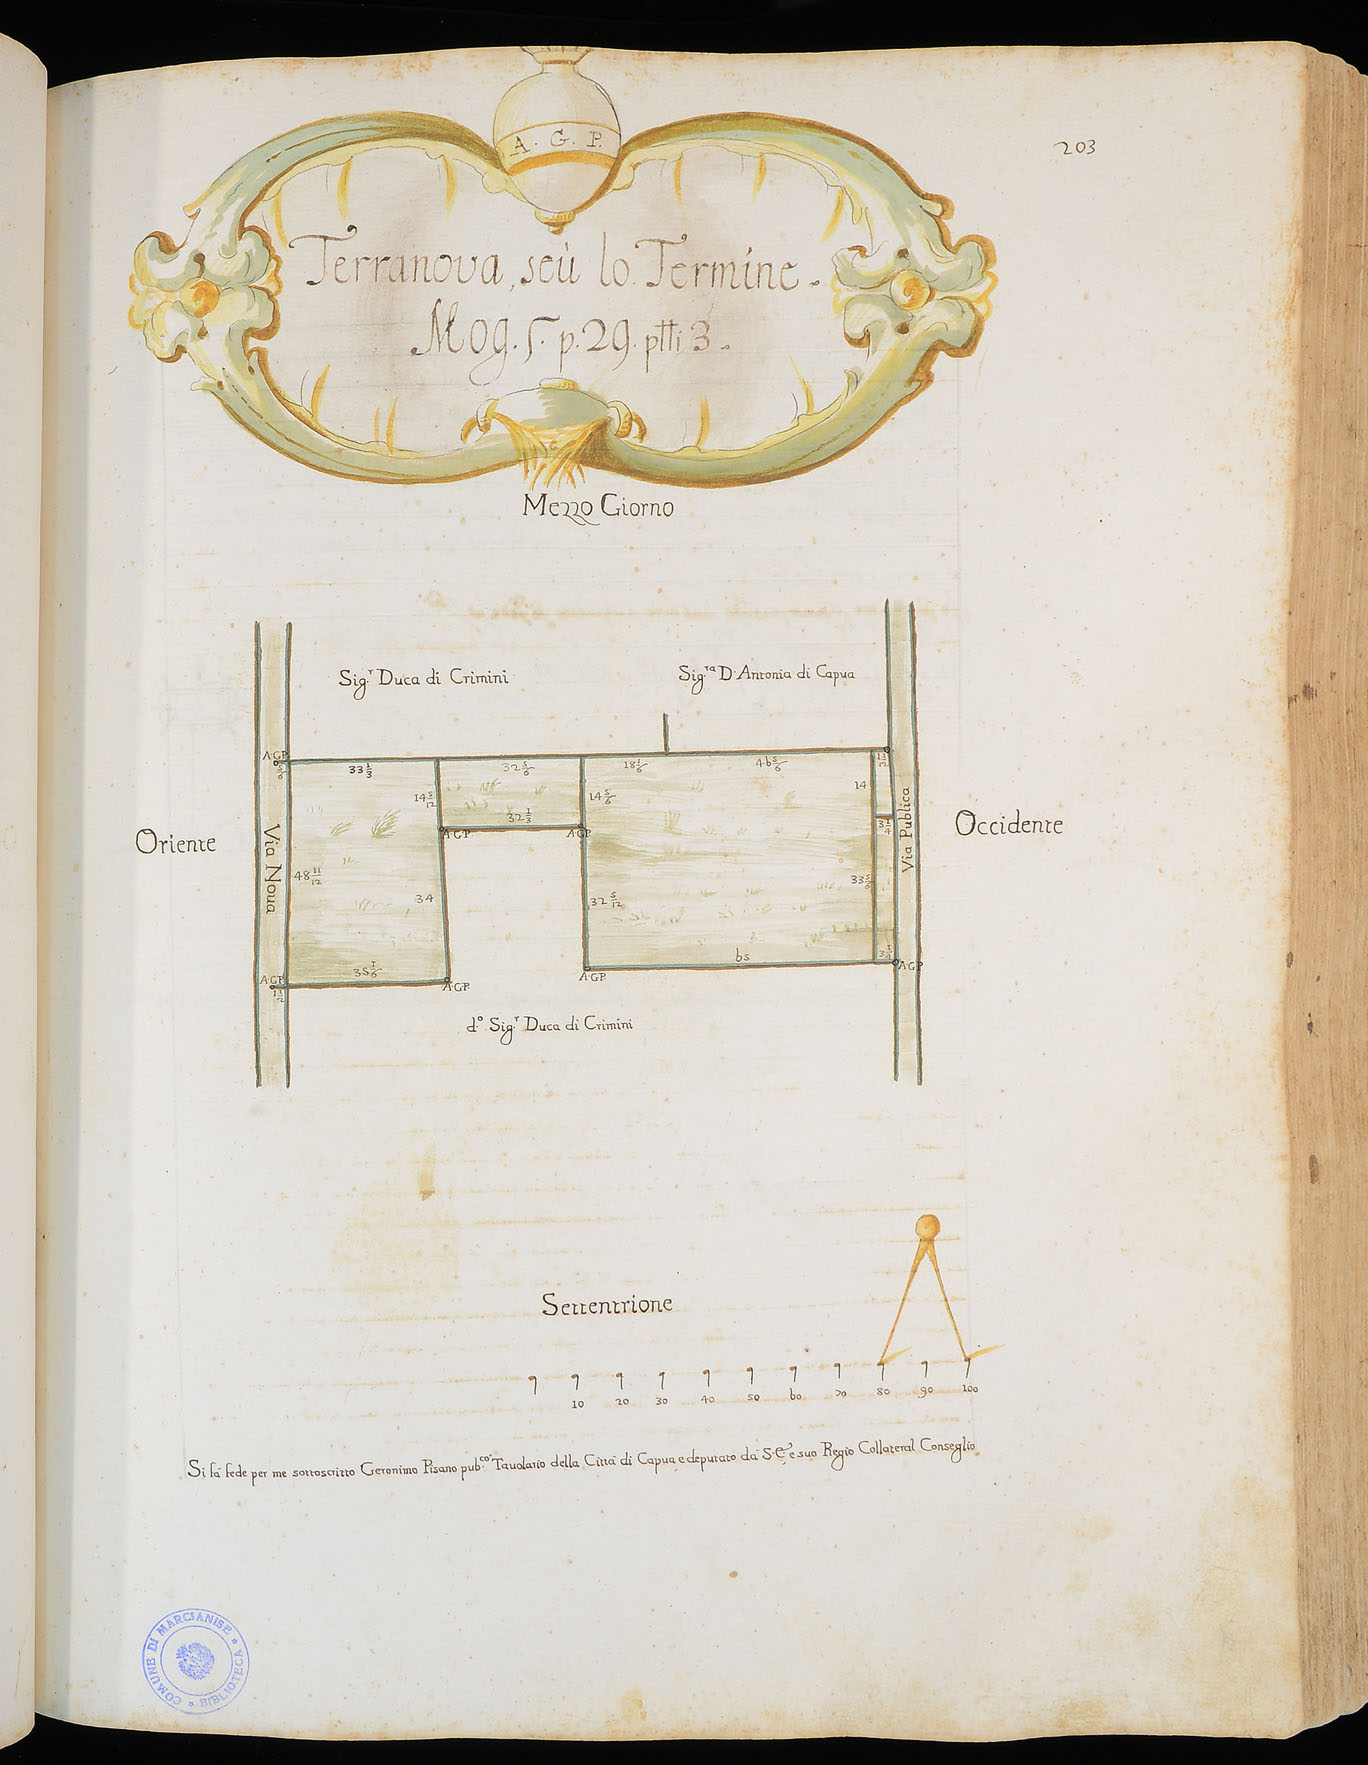 203
A. G. P.
Terranova, seù lo Termine.
Mog. 5. p. 29. ptti 3.
Mezzo Giorno
Sig.r Duca di Crimini
Sig.ra D. Antonia di Capua
A.G.P.
5/6
33 1/3
32 5/6
18 1/6
46 5/6
1 1/12
14 5/12
14 5/6
14
32 1/3
A.G.P.
A.G.P.
3 1/4
Oriente
Via Noua
Via Publica
Occidente
48 11/12
34
32 5/12
33 5/6
65
3 1/4
35 1/6
A.G.P.
1 1/2
A.G.P.
A.G.P.
A.G.P.
d.o Sig.r Duca di Crimini
Settentrione
10 20 30 40 50 60 70 80 90 100
Si fà fede per me sottoscritto Geronimo Pisano pub.co Tauolario della Città di Capua, e deputato da S.E. e suo Regio Collateral Conseglio
COMUNE DI MARCIANISE * BIBLIOTECA *